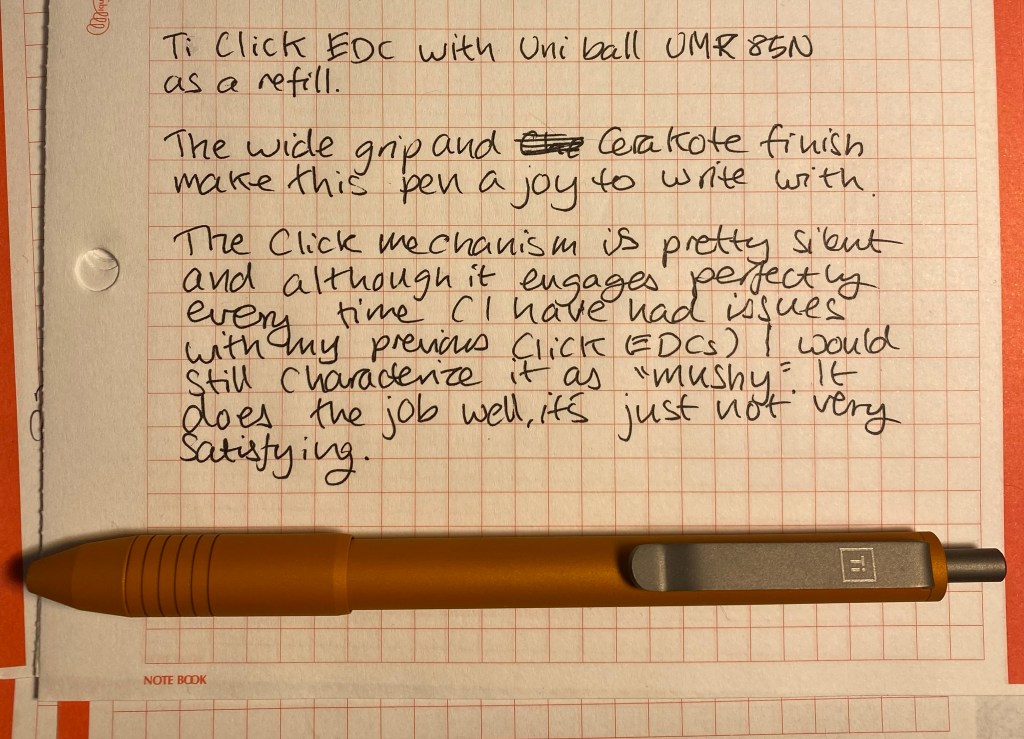 Ti Click EDC with Uni ball UMR 85N
as a refill.
The wide grip and Cerakote finish
make this pen a joy to write with.
The Click mechanism is pretty silent
and although it engages perfectly
every time (I have had issues
with my previous Click EDCs) I would
still characterize it as "mushy". It
does the job well, it's just not very
satisfying.
Ti
NOTE BOOK